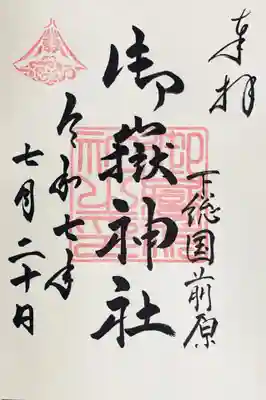 奉拝
下総国前原
御嶽神社
令和七年
七月二十日